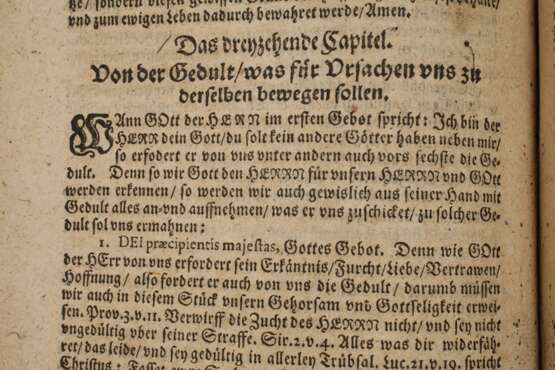 und zum ewigen Leben dadurch bewahret werde/Amen.
Das dreyzehende Capitel.
Von der Gedult/was für Vrsachen vns zu
derselben bewegen sollen.
WAnn GOtt der HERR im ersten Gebot spricht: Ich bin der
HERR dein Gott/du solt kein andere Götter haben neben mir/
so erfodert er von vns vnter andern auch vors sechste die Ge-
dult. Denn so wir Gott den HERRN für vnsern HERRN vnd GOtt
werden erkennen/so werden wir auch gewislich aus seiner Hand mit
Gedult alles an-vnd auffnehmen/was er vns zuschicket/zu solcher Ge-
dult sol vns ermahnen;
1. DEI præcipientis majestas, Gottes Gebot. Denn wie GOtt
der HErr von vns erfordert sein Erkäntnis/Furcht/Liebe/Vertrawen/
Hoffnung/also fordert er auch von vns die Gedult/darumb müssen
wir auch in diesem Stück vnsern Gehorsam vnd Gottseligkeit erwei-
sen. Prov.3.v.11. Verwirff die Zucht des HERRN nicht/vnd sey nicht
vngedültig vber seiner Straffe. Sir.2.v.4. Alles was dir widerfäh-
ret/das leide/vnd sey gedültig in allerley Trübsal. Luc.21.v.19. spricht
Christus: